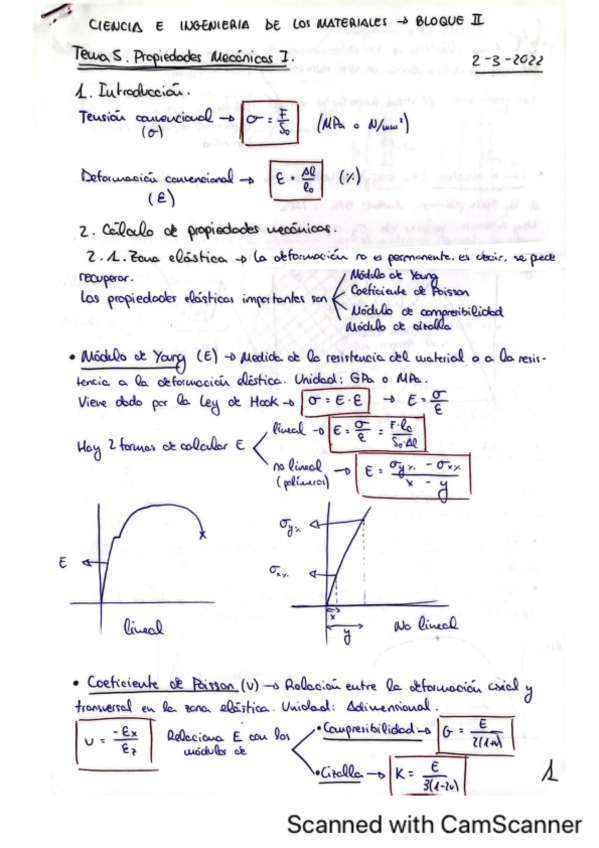 CIENCIA E INGENIERIA DE LOS MATERIALES → BLOQUE II
Tema 5. Propiedades Mecánicas I. 2-3-2022
1. Introducción.
Tensión convencional → σ = F/S₀ (MPa o N/mm²)
(σ)
Deformación convencional → ε = Δl/l₀ (%)
(ε)
2. Cálculo de propiedades mecánicas.
2.1. Zona elástica → La deformación no es permanente, es decir, se puede
recuperar.
Las propiedades elásticas importantes son
Módulo de Young
Coeficiente de Poisson
Módulo de compresibilidad
Módulo de cizalla
• Módulo de Young (E) → Medida de la resistencia del material o a la resis-
tencia a la deformación elástica. Unidad: GPa o MPa.
Viene dado por la Ley de Hook → σ = E·ε → E = σ/ε
Hay 2 formas de calcular E
lineal → E = σ/ε = F·l₀/S₀·Δl
no lineal → E = σy% - σx%/x - y
(polímeros)
E
lineal
σy%
σx%
x
y
No lineal
• Coeficiente de Poisson (ν) → Relación entre la deformación axial y
transversal en la zona elástica. Unidad: Adimensional.
ν = -εx/εz Relaciona E con los
módulos de
• Compresibilidad → G = E/2(1+ν)
• Cizalla → K = E/3(1-2ν)
1
Scanned with CamScanner